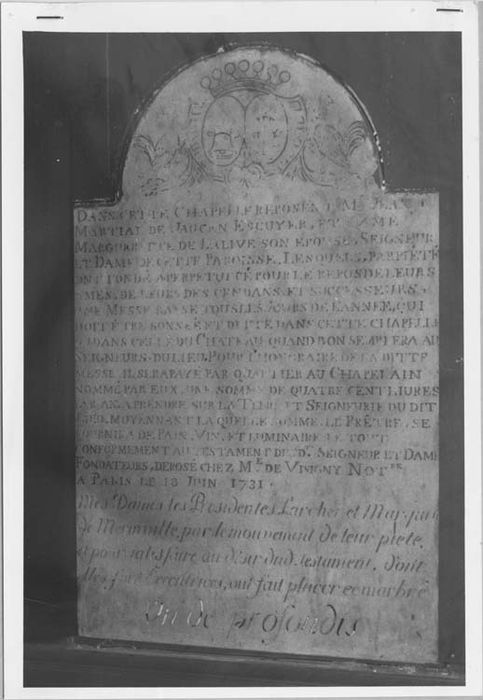 DANS CETTE CHAPELLE REPOSENT Mr JEAN
MARTIAL DE JAUCEN ESCUYER, ET DAME
MARGUERITTE DE LALIVE SON EPOUSE, SEIGNEUR
ET DAME DE CETTE PAROISSE, LESQUELS, PAR PIETÉ
ONT FONDÉ A PERPETUITÉ POUR LE REPOS DE LEURS
AMES, DE LEURS DESCENDANS, ET SUCCESSEURS,
UNE MESSE BASSE TOUS LES JOURS DE L'ANNÉE, QUI
DOIT ETRE SONNÉE ET DITTE DANS CETTE CHAPELLE
OU DANS CELLE DU CHATEAU, QUAND BON SEMBLERA AU
SEIGNEURS DU LIEU, POUR L'HONORAIRE DE LA DITTE
MESSE, IL SERA PAYÉ PAR QUARTIER AU CHAPELAIN
NOMMÉ PAR EUX, UNE SOMME DE QUATRE CENT LIURES
PAR AN, A PRENDRE SUR LA TERRE ET SEIGNEURIE DU DIT
LIEU, MOYENNANT LAQUELLE SOMME, LE PRÊTRE, SE
FOURNIRA DE PAIN, VIN, ET LUMINAIRE, LE TOUT
CONFORMEMENT AU TESTAMENT DES Dt SEIGNEUR ET DAME
FONDATEURS, DEPOSÉ CHEZ Me DE VISIGNY NOTre
A PARIS LE 18 JUIN 1731.
Mes Dames les Presidentes Larcher et
de Mermville, par le mouvement de leur pieté,
et pour satisfaire au desir dud. testament, dont
elles sont Executrices, ont fait placer ce marbre
Un de profondis